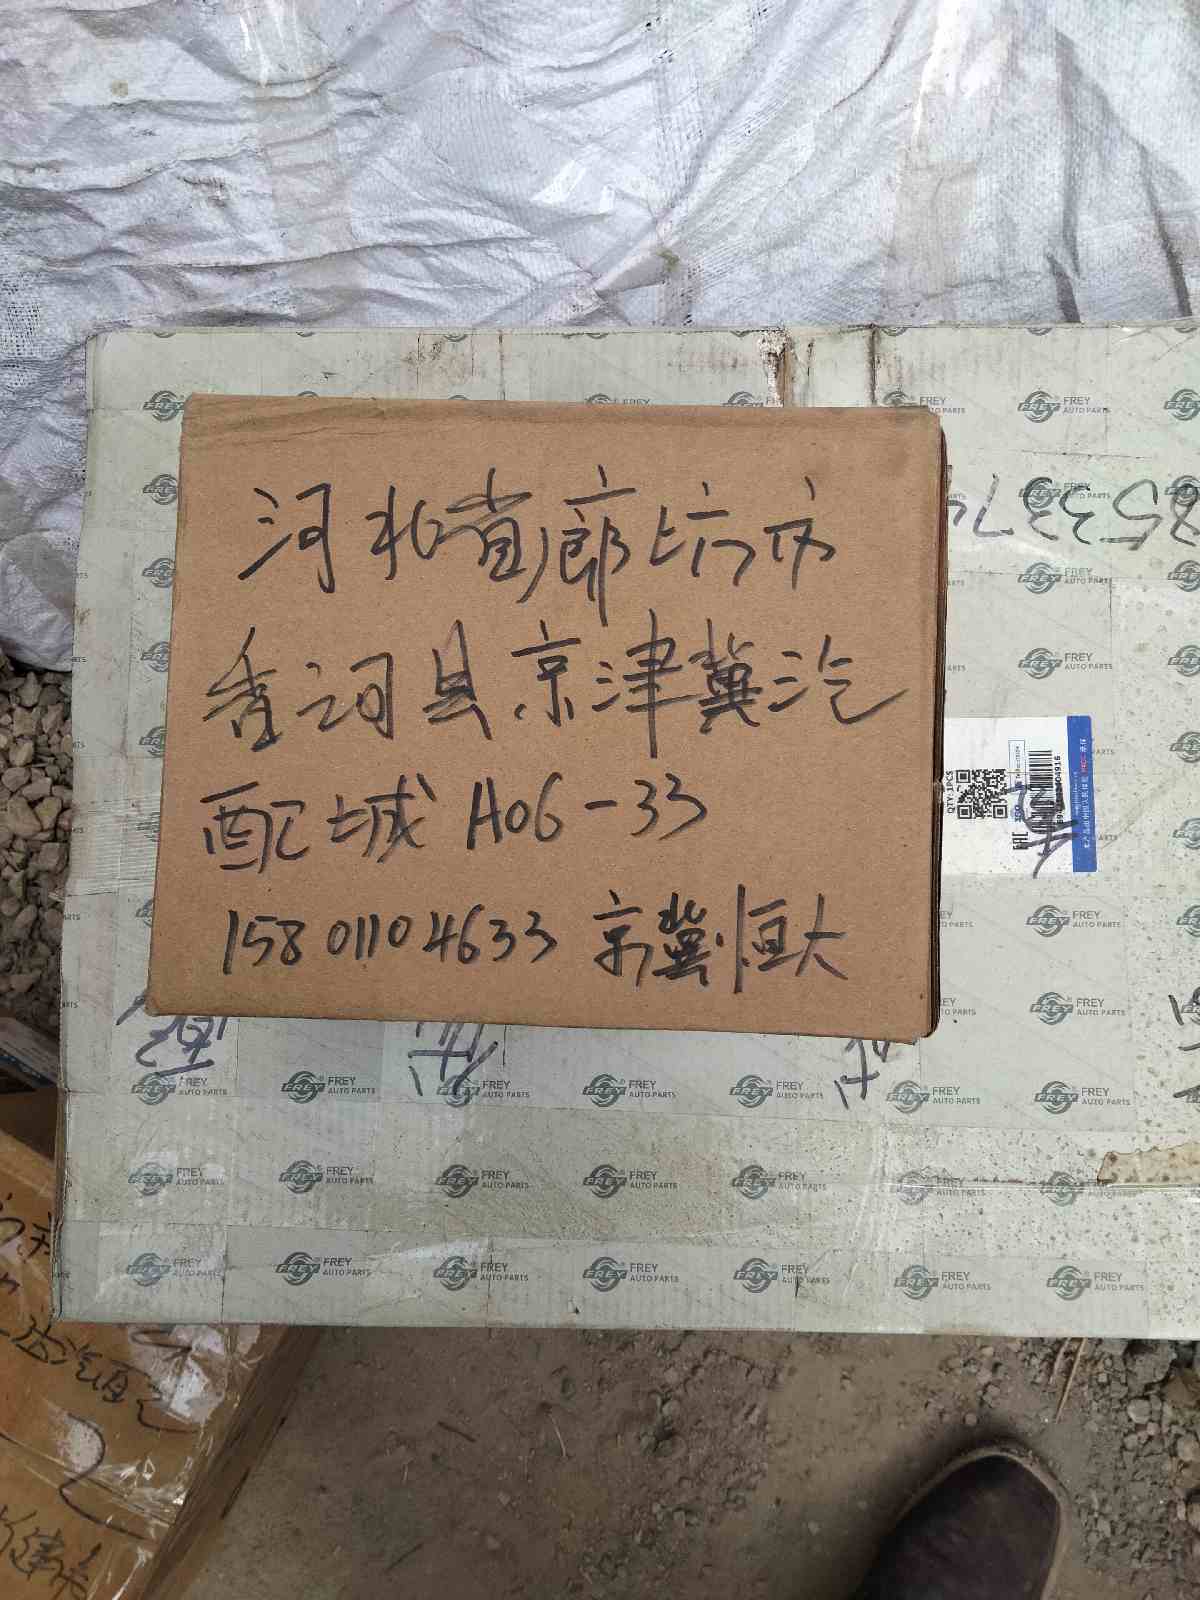 河北省廊坊市
香河县京津冀汽
配城 A06-33
15801104633 京冀恒大
FREY AUTO PARTS
QTY: 1PCS
853374
汽配